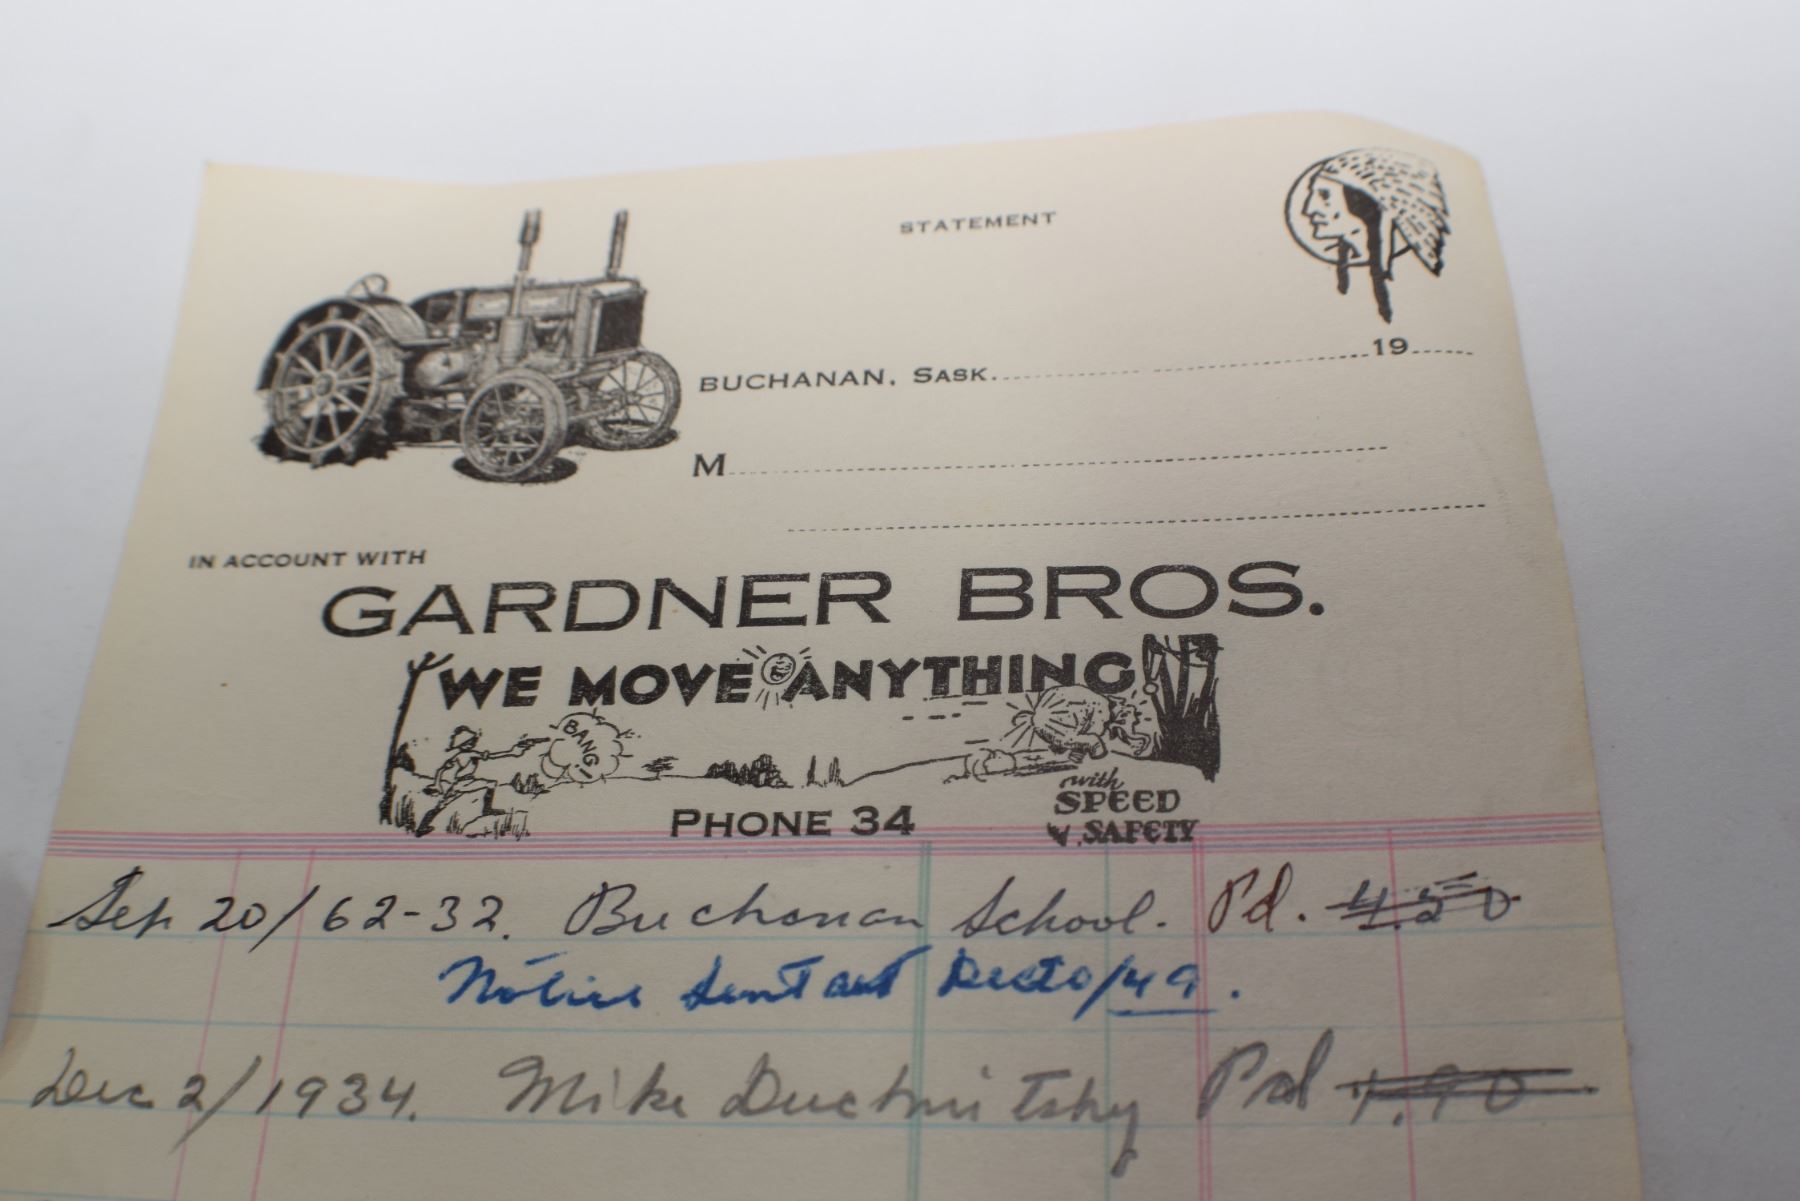 STATEMENT
BUCHANAN, SASK. 19
M
IN ACCOUNT WITH
GARDNER BROS.
WE MOVE ANYTHING
BANG!
with
SPEED
SAFETY
PHONE 34
Sep 20/62-32. Buchanan School. Pd. 4.50
Notice Sent out Dec 20/49.
Dec 2/1934. Mike Pd 1.90